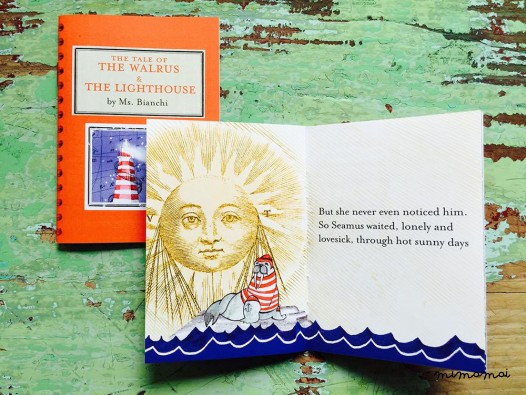 THE TALE OF
THE WALRUS
&
THE LIGHTHOUSE
by Ms. Bianchi
V T
But she never even noticed him.
So Seamus waited, lonely and
lovesick, through hot sunny days
mimamai